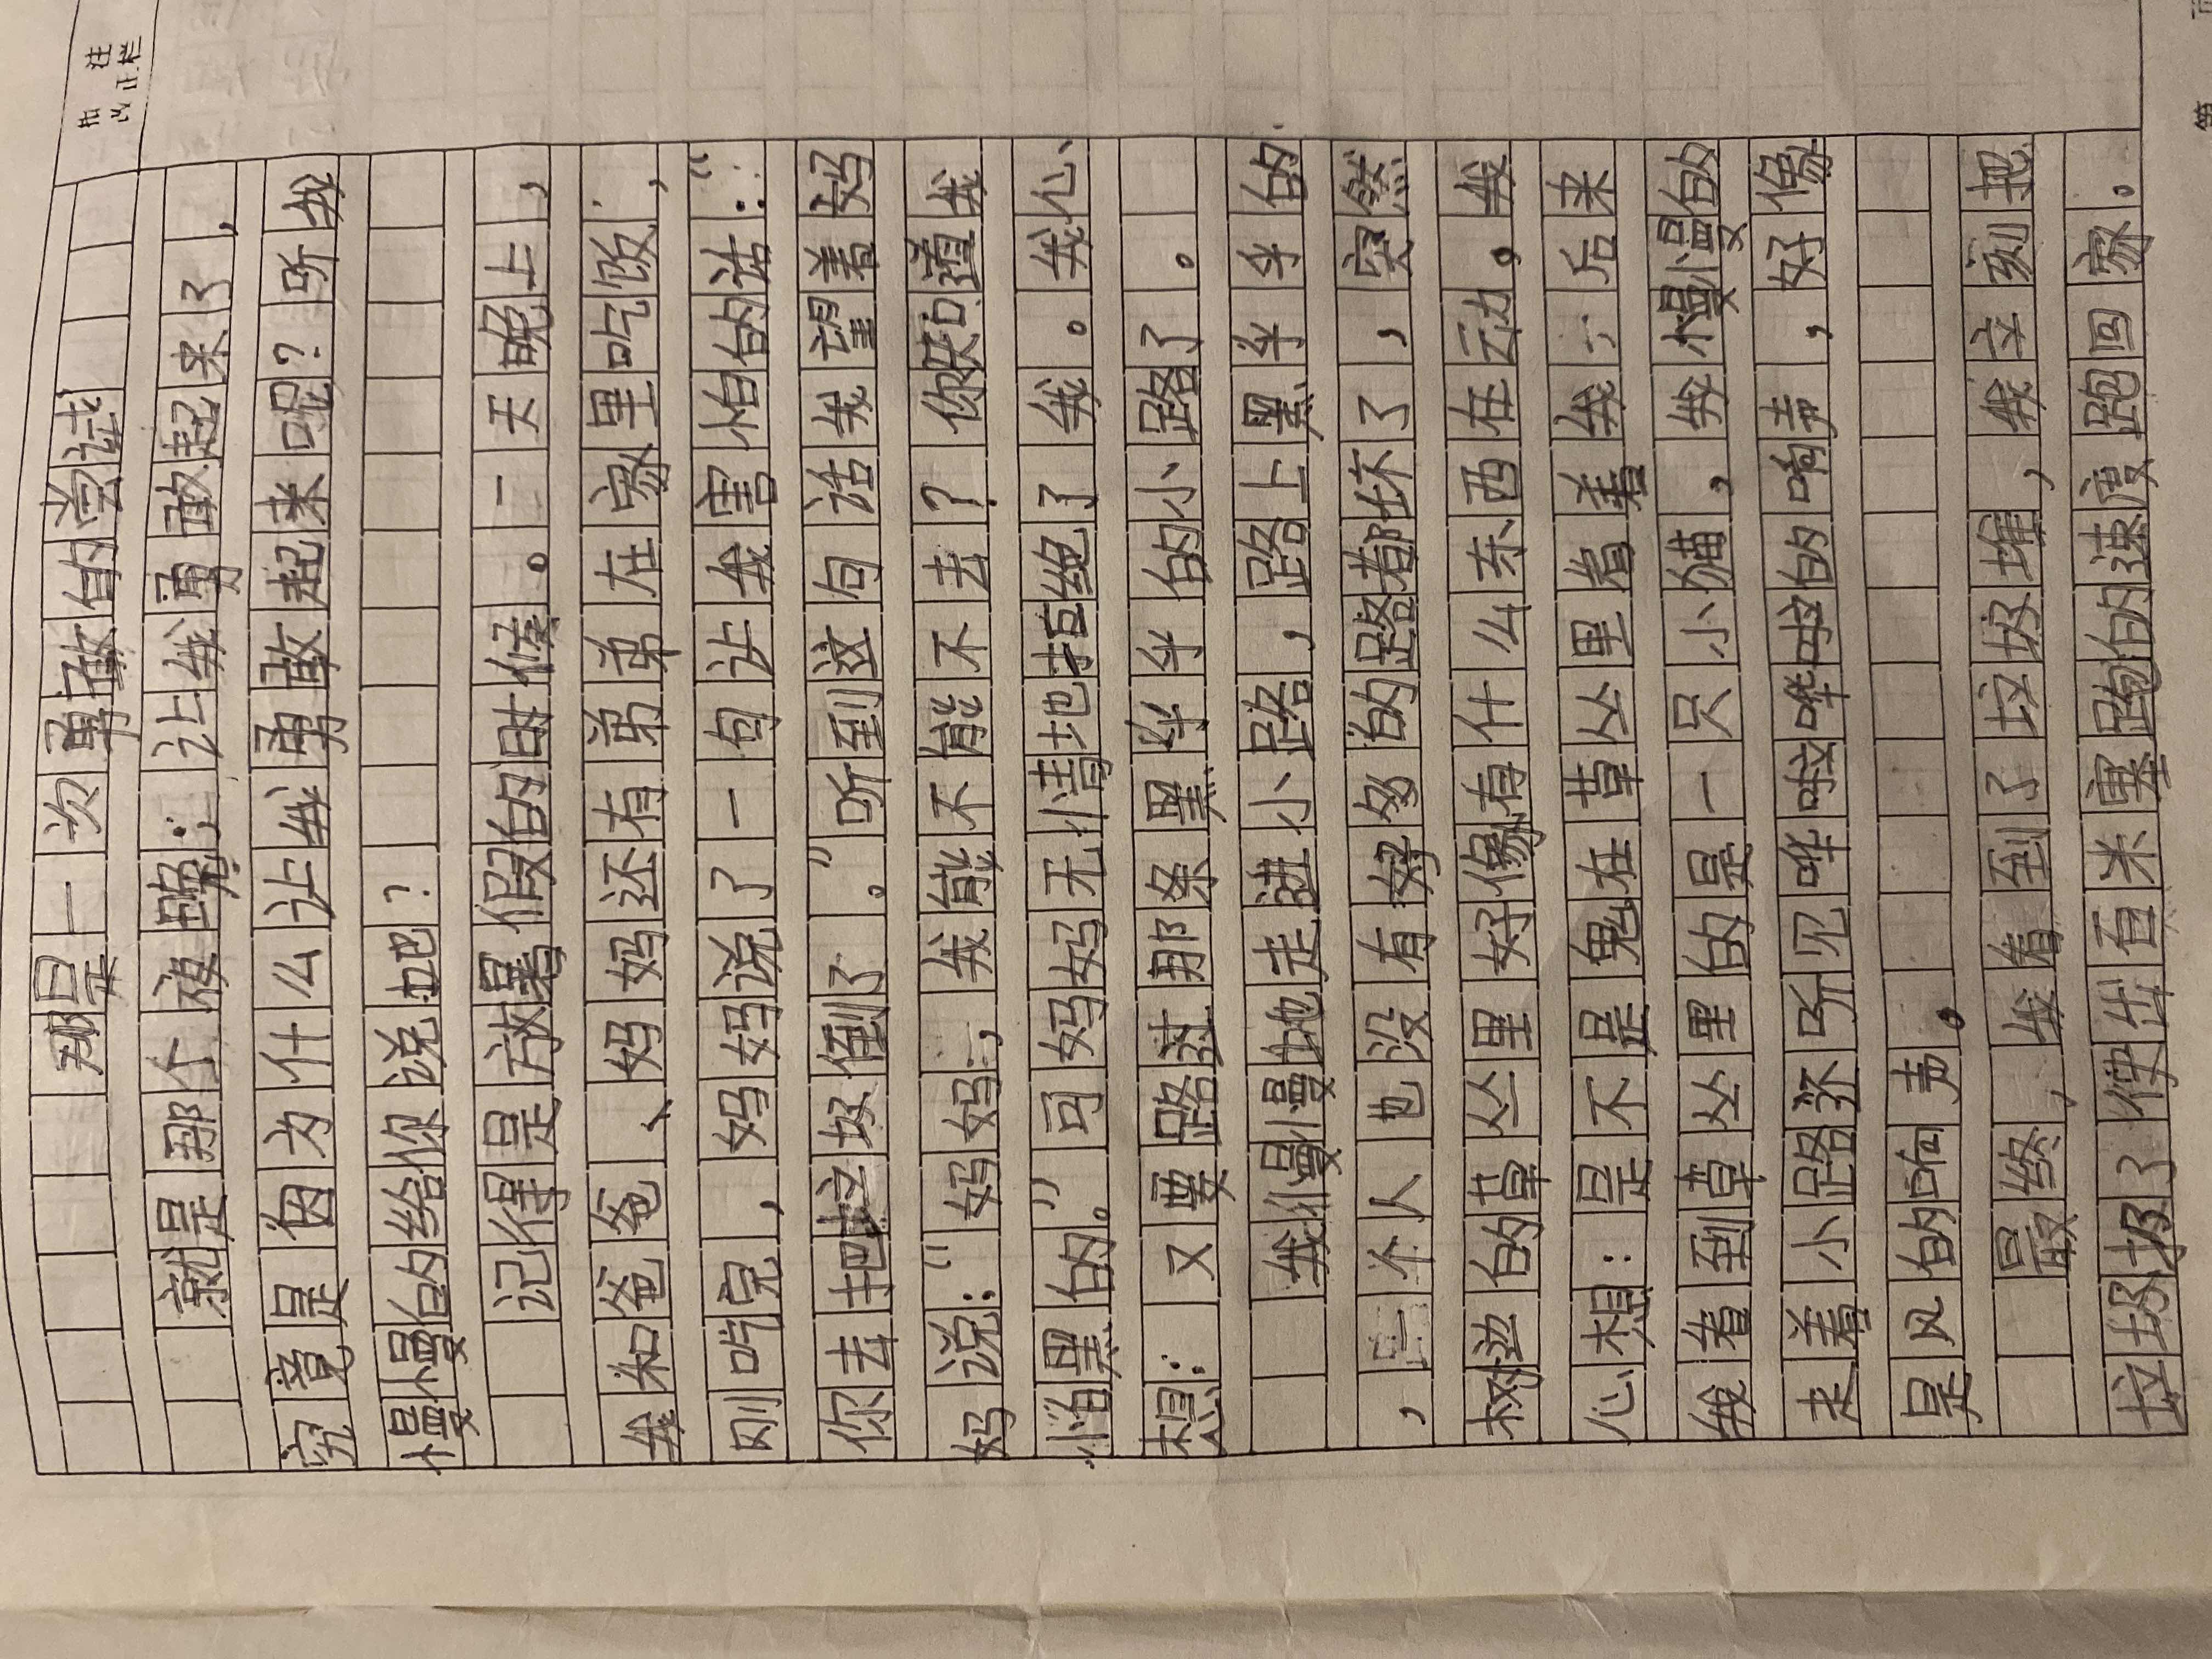 批注
改正栏
那是一次勇敢的尝试
就是那个夜晚…让我勇敢起来了，
究竟是因为什么让我勇敢起来呢？听我
慢慢的给你说吧？
记得是放暑假的时候。一天晚上，
我和爸爸、妈妈还有弟弟在家里吃饭，
刚吃完，妈妈说了一句让我害怕的话：“
你去把垃圾倒了。”听到这句话我望着妈
妈说：“妈妈，我能不能不去？你知道我
怕黑的。”可妈妈无情地拒绝了我。我心
想：又要路过那条黑乎乎的小路了。
我慢慢地走进小路，路上黑乎乎的
，一个人也没有好多的路都坏了，突然
树边的草丛里好像有什么东西在动。我
心想：是不是鬼在草丛里看着我…后来
我看到草丛里的是一只小猫，我慢慢的
走着小路还听见哗啦哗啦的响声，好像
是风的响声。
最终，我看到了垃圾堆，我立刻把
垃圾扔了使出百米塞跑的速度跑回家。
第